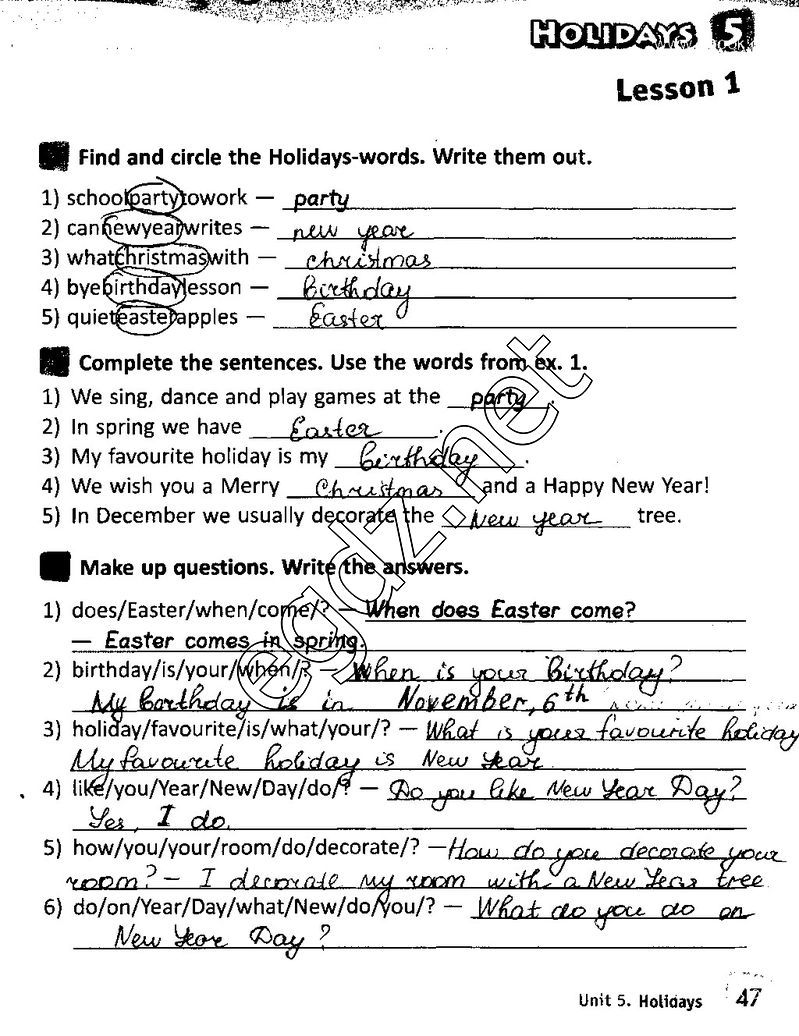 HOLIDAYS 5
Lesson 1
Find and circle the Holidays-words. Write them out.
1) schoolpartytowork — party
2) cannewyearwrites — new year
3) whatchristmaswith — christmas
4) byebirthdaylesson — Birthday
5) quieteasterapples — Easter
Complete the sentences. Use the words from ex. 1.
1) We sing, dance and play games at the party.
2) In spring we have Easter.
3) My favourite holiday is my birthday.
4) We wish you a Merry Christmas and a Happy New Year!
5) In December we usually decorate the New year tree.
egdz.net
Make up questions. Write the answers.
1) does/Easter/when/come/? — When does Easter come?
— Easter comes in spring.
2) birthday/is/your/when/? — When is your Birthday?
My Barthday is in November, 6th
3) holiday/favourite/is/what/your/? — What is your favourite holiday
My favourite holiday is New Year
4) like/you/Year/New/Day/do/? — Do you like New Year Day?
Yes, I do.
5) how/you/your/room/do/decorate/? — How do you decorate your
room? — I decorate my room with a New Year tree
6) do/on/Year/Day/what/New/do/you/? — What do you do on
New Year Day?
Unit 5. Holidays 47